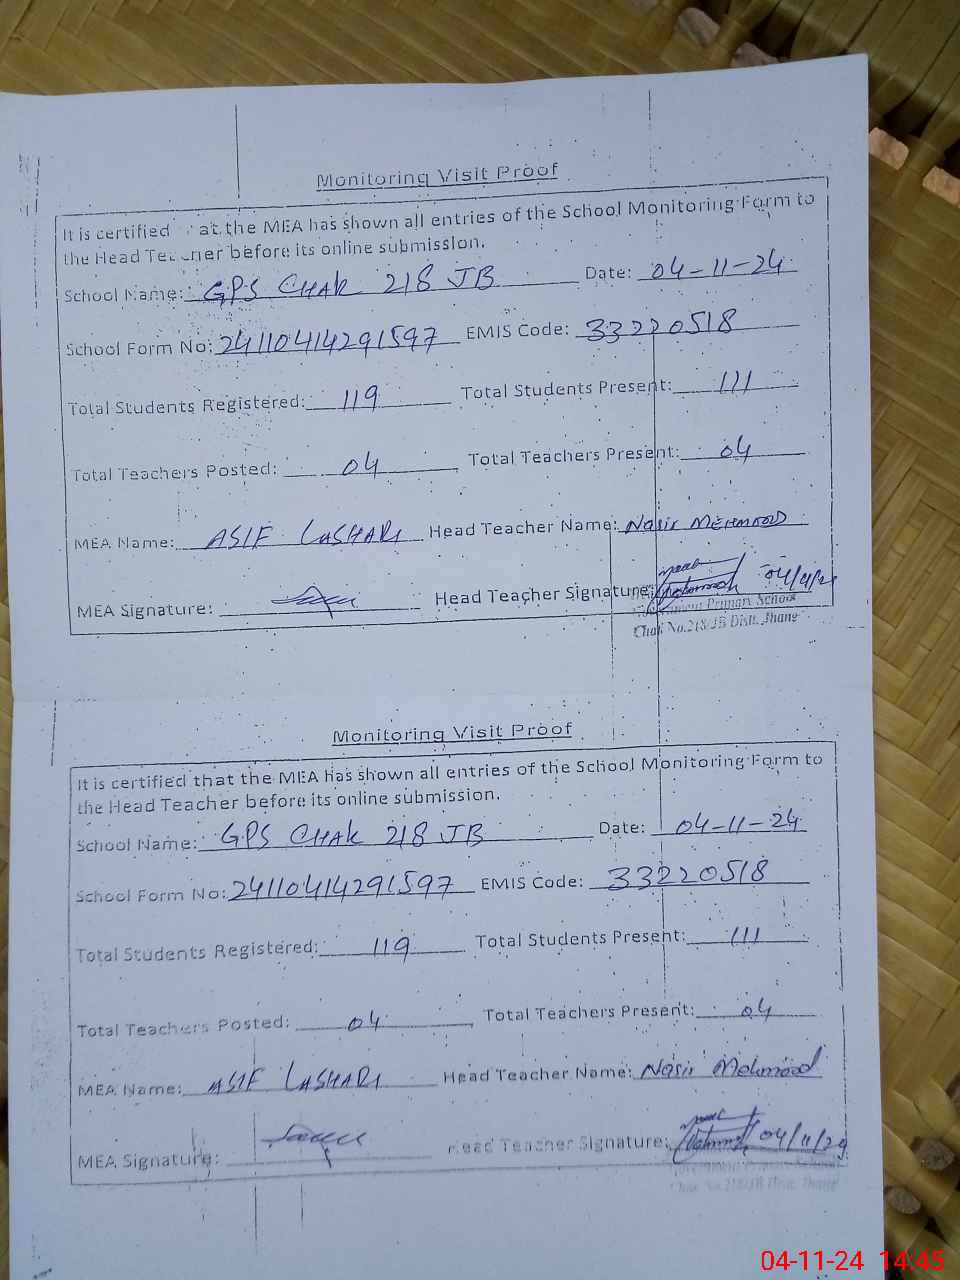 Monitoring Visit Proof
It is certified at the MEA has shown all entries of the School Monitoring Form to
the Head Teacher before its online submission.
School Name: GPS CHAK 218 JB Date: 04-11-24
School Form No: 24110414291597 EMIS Code: 33220518
Total Students Registered: 119 Total Students Present: 111
Total Teachers Posted: 04 Total Teachers Present: 04
MEA Name: ASIF LASHARI Head Teacher Name: Nasir MEHMOOD
MEA Signature: Head Teacher Signature: 04/11/24
Government Primary School
Chak No.218/JB Distt. Jhang
Monitoring Visit Proof
It is certified that the MEA has shown all entries of the School Monitoring Form to
the Head Teacher before its online submission.
School Name: GPS CHAK 218 JB Date: 04-11-24
School Form No: 24110414291597 EMIS Code: 33220518
Total Students Registered: 119 Total Students Present: 111
Total Teachers Posted: 04 Total Teachers Present: 04
MEA Name: ASIF LASHARI Head Teacher Name: Nasir Mehmood
MEA Signature: Head Teacher Signature: 04/11/24
Government Primary School
Chak No.218/JB Distt. Jhang
04-11-24 14:45